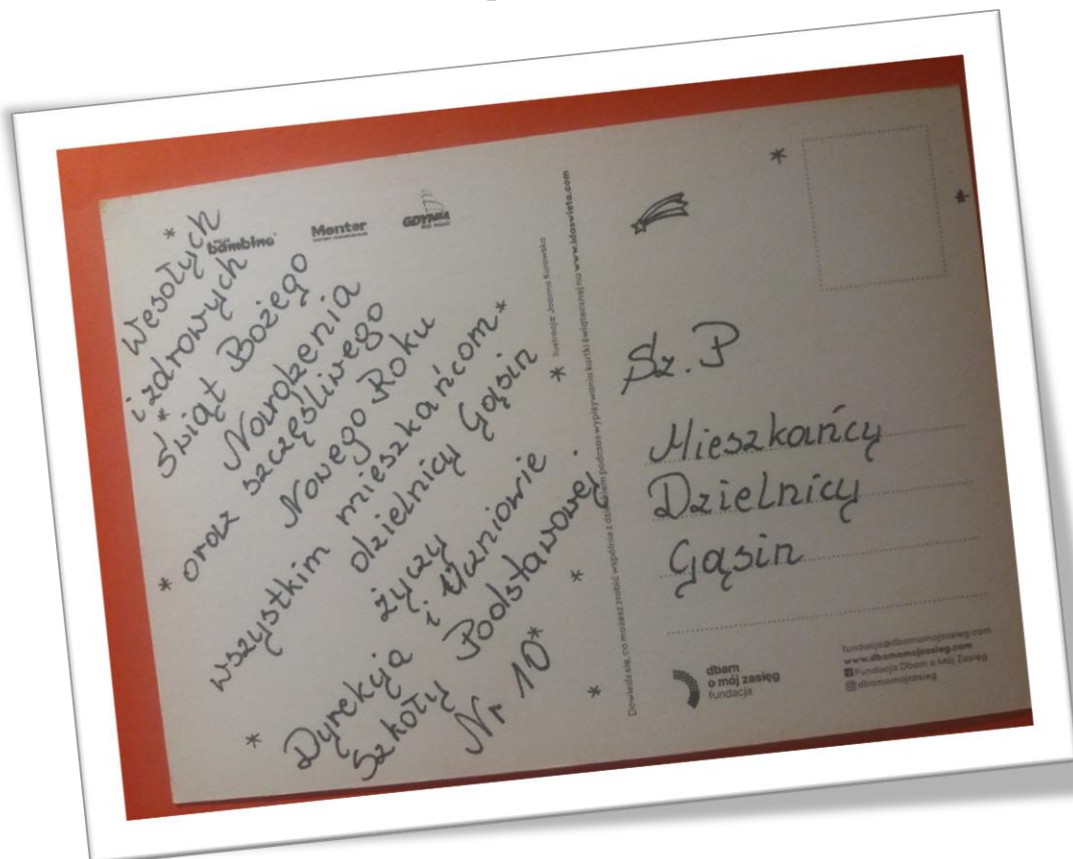 bambino
Mentor
GDYNIA
Wesołych
i zdrowych
Świąt Bożego
Narodzenia
oraz szczęśliwego
Nowego Roku
wszystkim mieszkańcom
dzielnicy Gąsin
życzy
Dyrekcja i Uczniowie
Szkoły Podstawowej
Nr 10
Ilustracja: Joanna
Dowiedz się, co możesz zrobić wspólnie z dzieckiem podczas wypisywania kartki świątecznej na www.idaswieta.com
Sz. P
Mieszkańcy
Dzielnicy
Gąsin
dbam
o mój zasięg
fundacja
fundacja@dbamomojzasieg.com
www.dbamomojzasieg.com
Fundacja Dbam o Mój Zasięg
@dbamomojzasieg